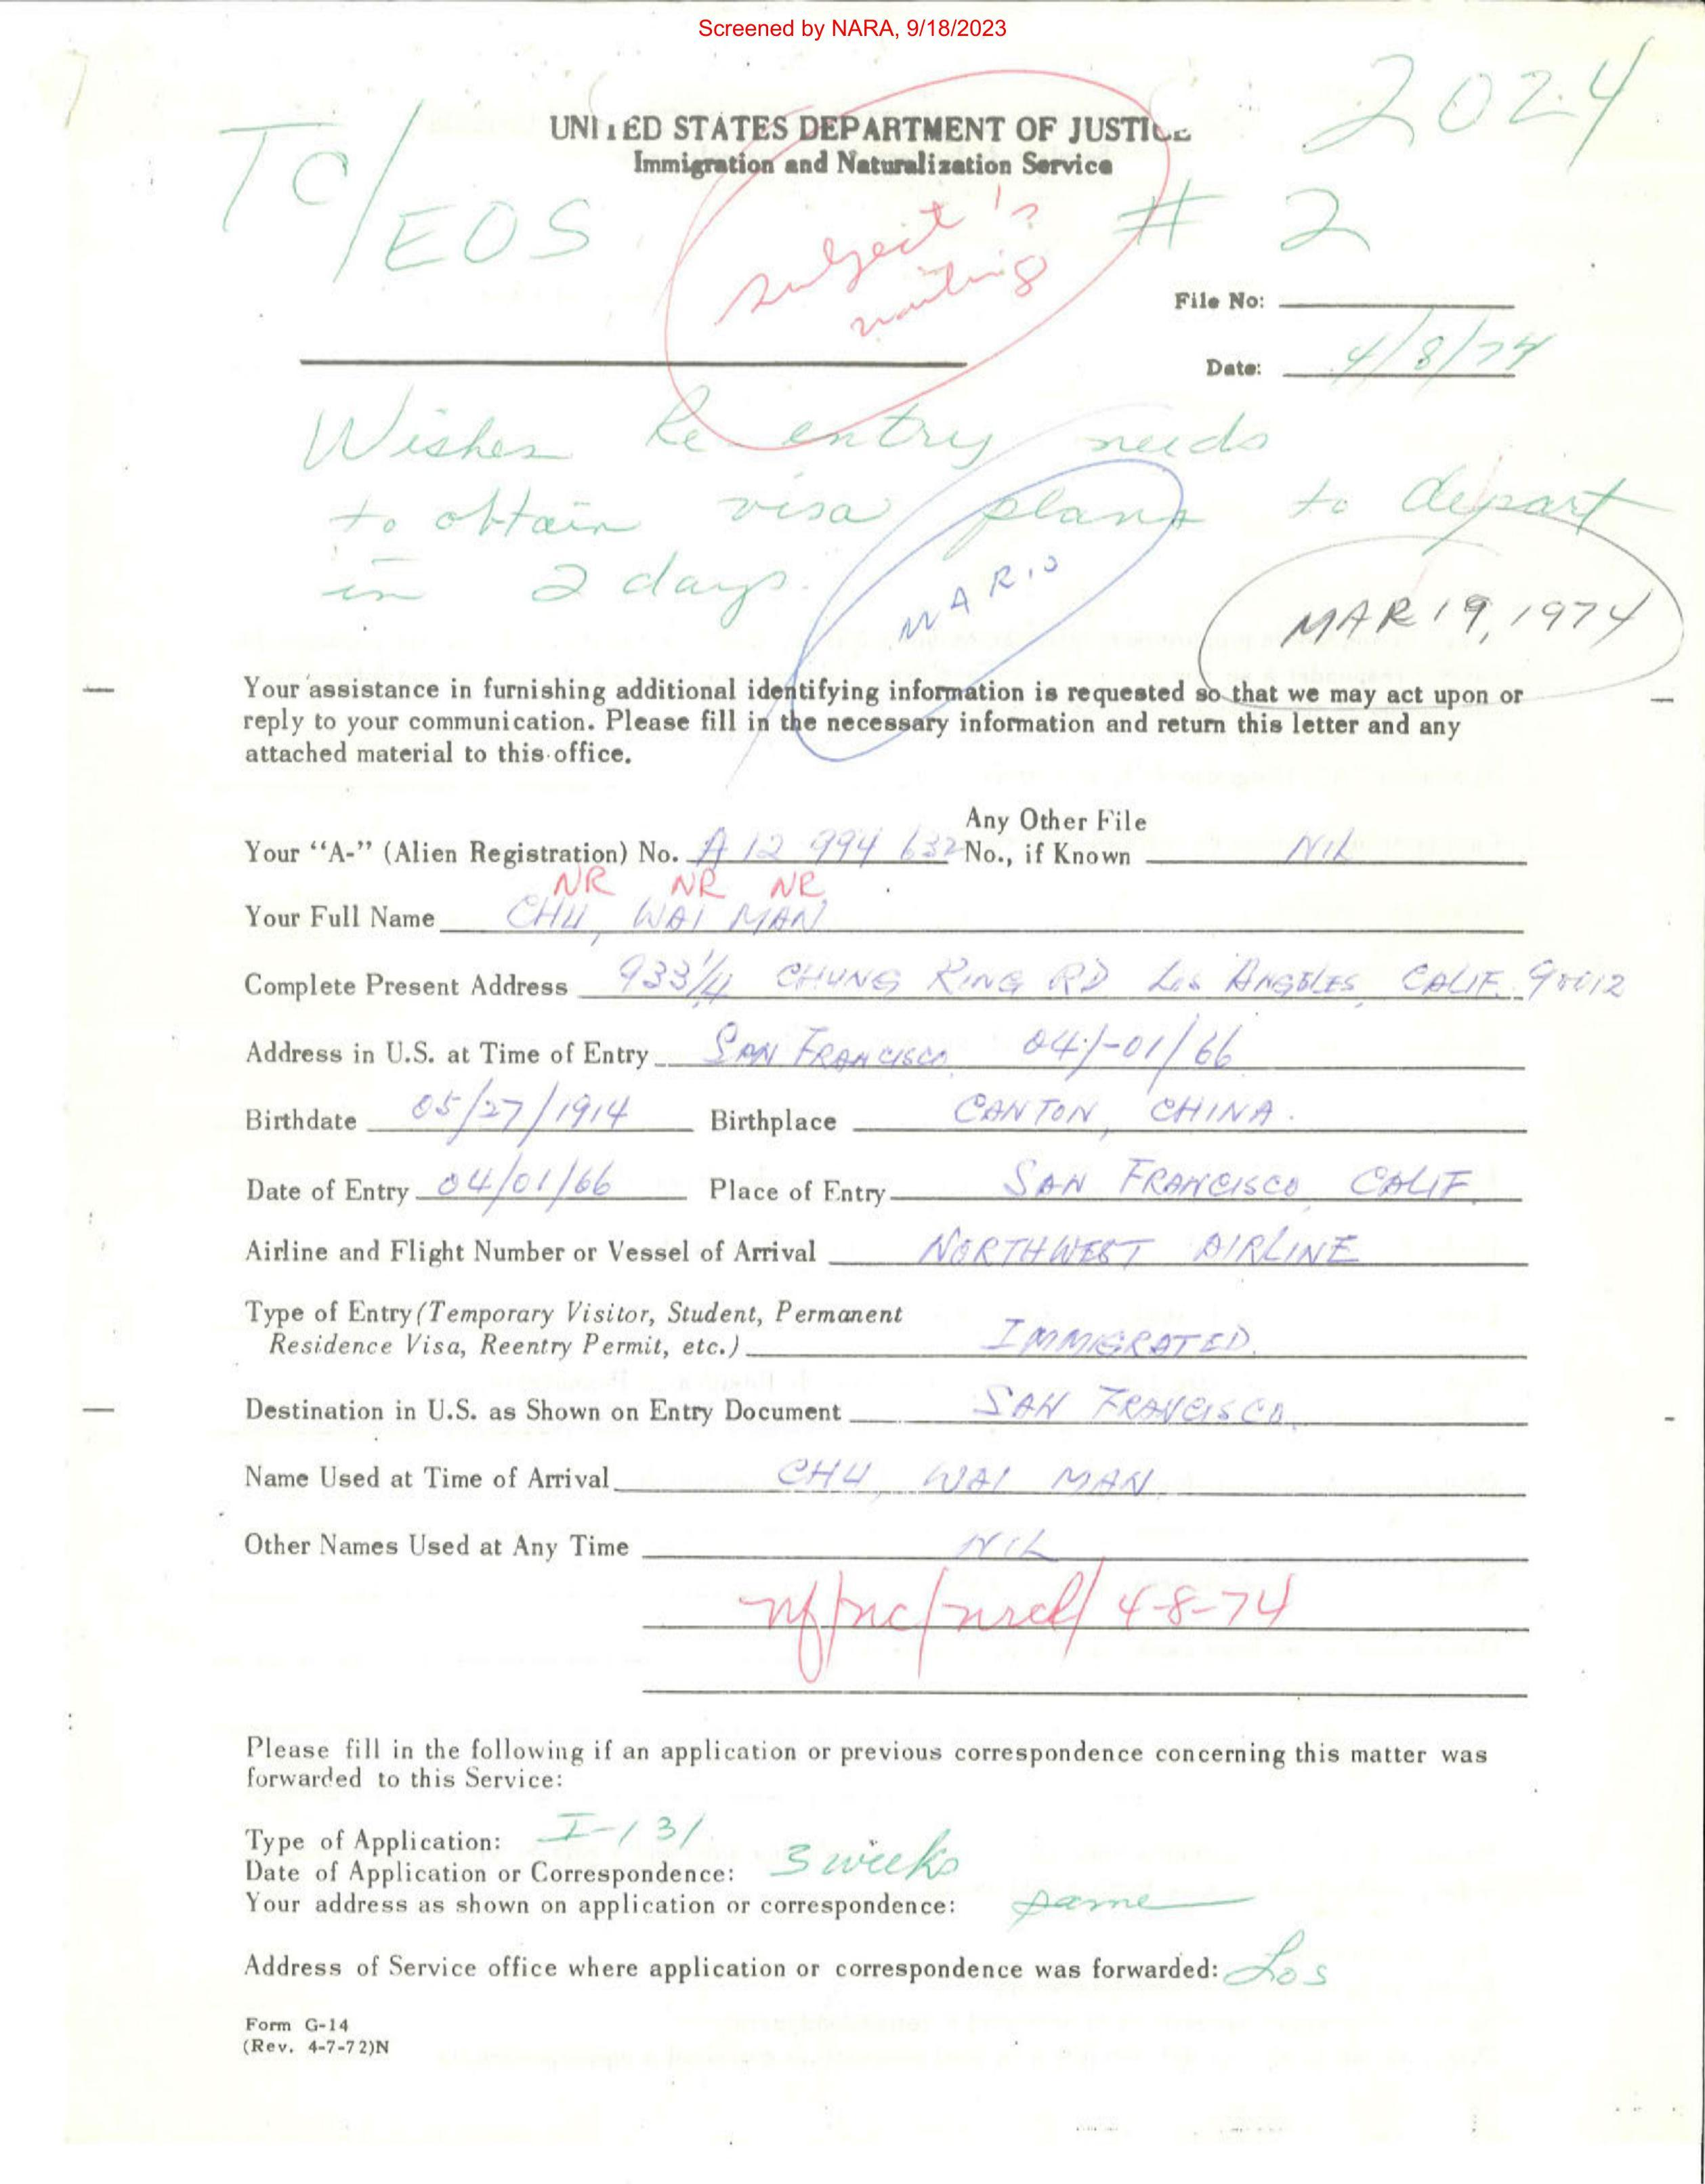 Screened by NARA, 9/18/2023
2024
UNITED STATES DEPARTMENT OF JUSTICE
Immigration and Naturalization Service
TC/EOS
# 2
subject is waiting
File No:
Date: 4/8/74
Wishes Re entry needs
to obtain visa plans to depart
in 2 days.
MARIO
MAR 19, 1974
Your assistance in furnishing additional identifying information is requested so that we may act upon or
reply to your communication. Please fill in the necessary information and return this letter and any
attached material to this office.
Your "A-" (Alien Registration) No. A 12 994 632 Any Other File No., if Known NIL
NR NR NR
Your Full Name CHU, WAI MAN
Complete Present Address 933 1/4 CHUNG KING RD Los ANGELES, CALIF. 90012
Address in U.S. at Time of Entry SAN FRANCISCO 04/-01/66
Birthdate 05/27/1914 Birthplace CANTON, CHINA.
Date of Entry 04/01/66 Place of Entry SAN FRANCISCO, CALIF.
Airline and Flight Number or Vessel of Arrival NORTHWEST AIRLINE
Type of Entry (Temporary Visitor, Student, Permanent
Residence Visa, Reentry Permit, etc.) IMMIGRATED.
Destination in U.S. as Shown on Entry Document SAN FRANCISCO.
Name Used at Time of Arrival CHU, WAI MAN
Other Names Used at Any Time NIL
nf/nc/nrcl/ 4-8-74
Please fill in the following if an application or previous correspondence concerning this matter was
forwarded to this Service:
Type of Application: I-131
Date of Application or Correspondence: 3 weeks
Your address as shown on application or correspondence: same
Address of Service office where application or correspondence was forwarded: Los
Form G-14
(Rev. 4-7-72)N